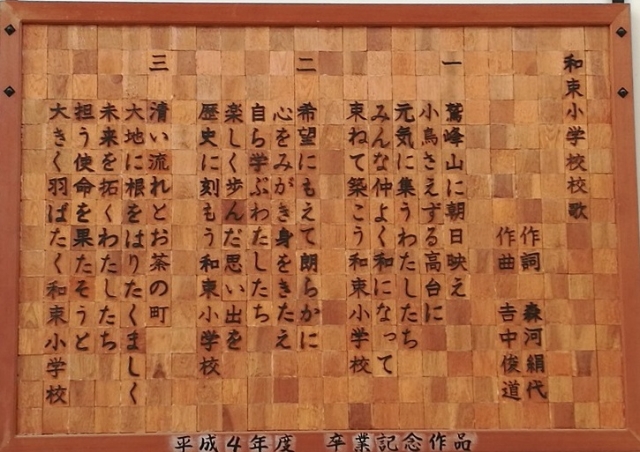 和束小学校校歌
作詞 森河絹代
作曲 吉中俊道
一
鷲峰山に朝日映え
小鳥さえずる高台に
元気に集うわたしたち
みんな仲よく和になって
束ねて築こう和束小学校
二
希望にもえて朗らかに
心をみがき身をきたえ
自ら学ぶわたしたち
楽しく歩んだ思い出を
歴史に刻もう和束小学校
三
清い流れとお茶の町
大地に根をはりたくましく
未来を拓くわたしたち
担う使命を果たそうと
大きく羽ばたく和束小学校
平成4年度 卒業記念作品